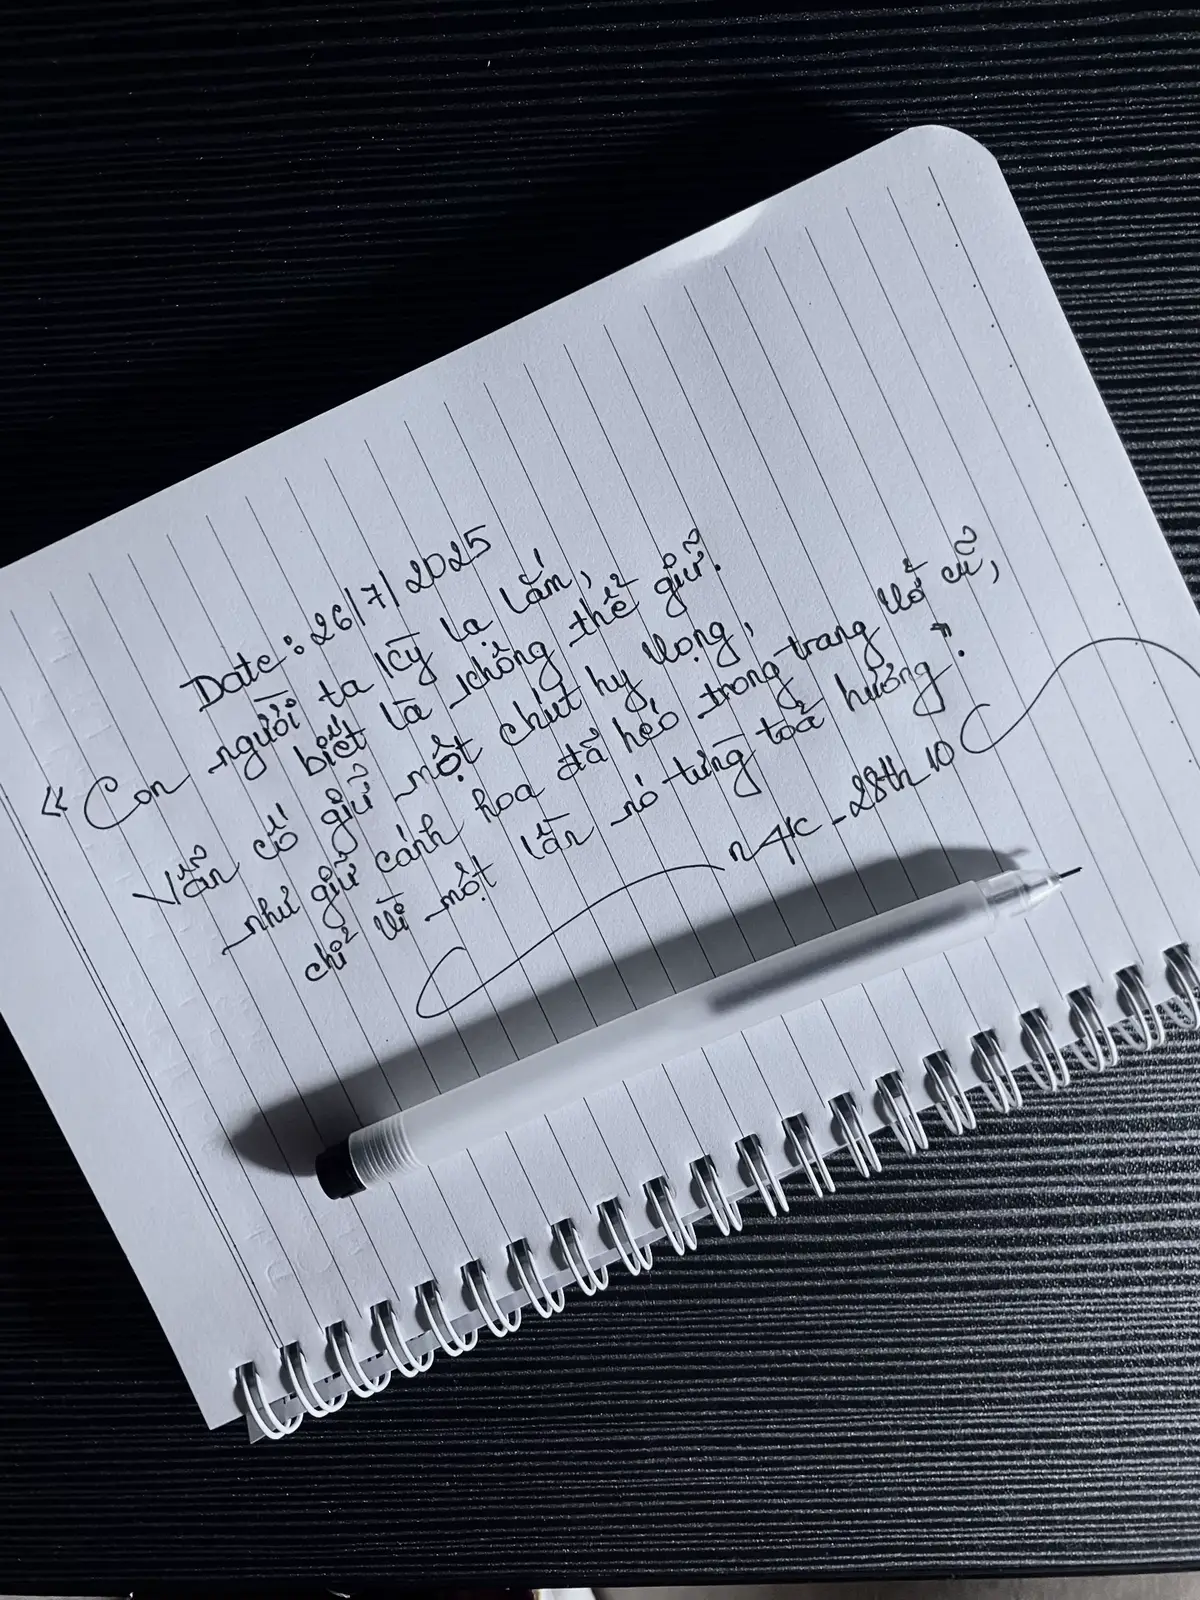 Date: 26/7/2025
“Con người ta kỳ lạ lắm,
biết là không thể giữ.
Vẫn cố giữ một chút hy vọng,
như giữ cánh hoa đã héo trong trang vở cũ,
chỉ vì một lần nó từng toả hương”.
n4k_28th10